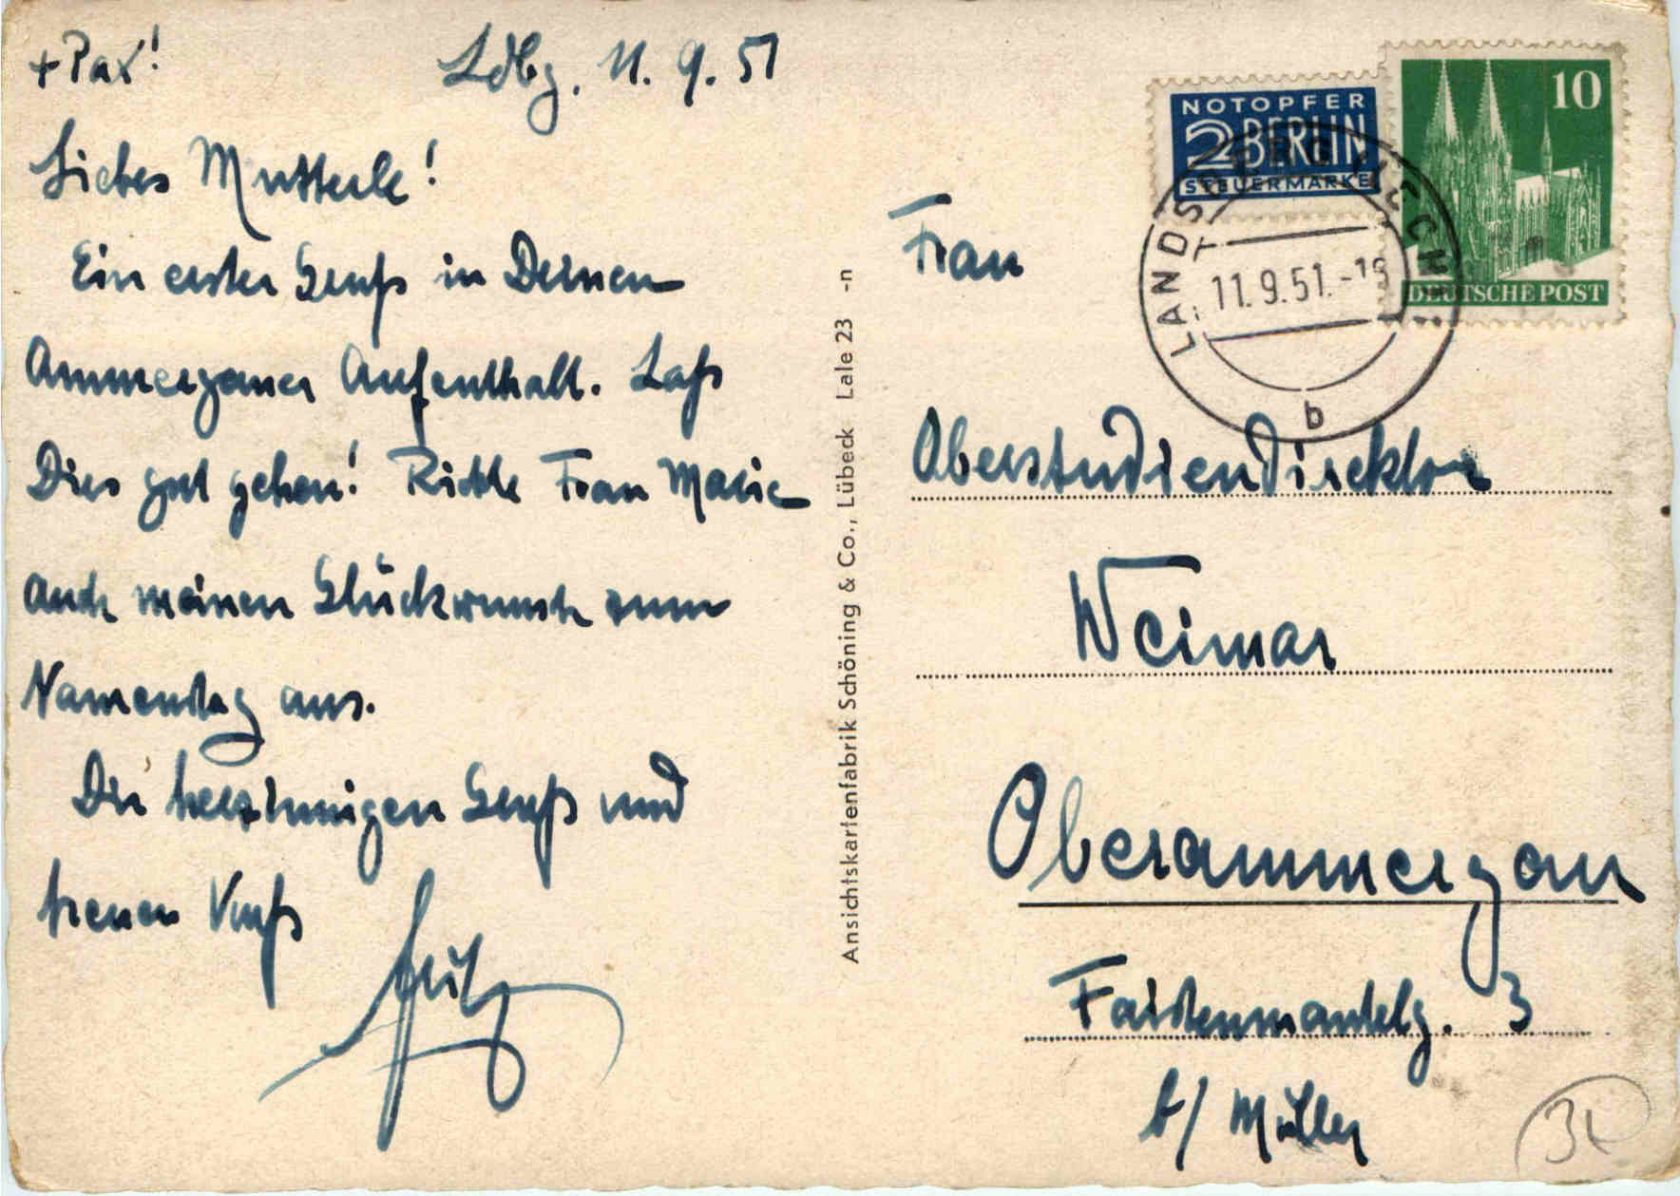 + Pax!
Ldbg. 11. 9. 51
Liebes Mutterle!
Ein erster Gruß in Deinen
Ammergauer Aufenthalt. Laß
Dirs gut gehen! Richte Frau Marie
auch meinen Glückwunsch zum
Namenstag aus.
Dir herzinnigen Gruß und
treuen Kuß
Fritz
Ansichtskartenfabrik Schöning & Co., Lübeck Lale 23 -n
NOTOPFER
2 BERLIN
STEUERMARKE
10
DEUTSCHE POST
LANDSBERG (LECH)
11.9.51.-19
b
Frau
Oberstudiendirektor
Weimar
Oberammergau
Faistenmantelg. 3
b/ Müller